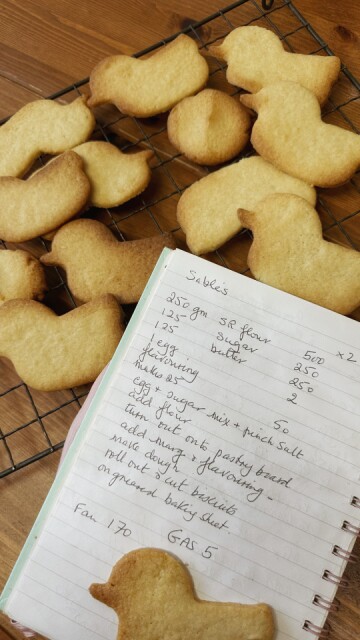 Sables
250 gm SR flour 500 x2
125 sugar 250
125 butter 250
1 egg 2
flavouring
makes 25 50
egg + sugar mix + pinch salt
add flour
turn out onto pastry board
add marg & flavouring -
make dough
roll out & cut biscuits
on greased baking sheet.
Fan 170 GAS 5